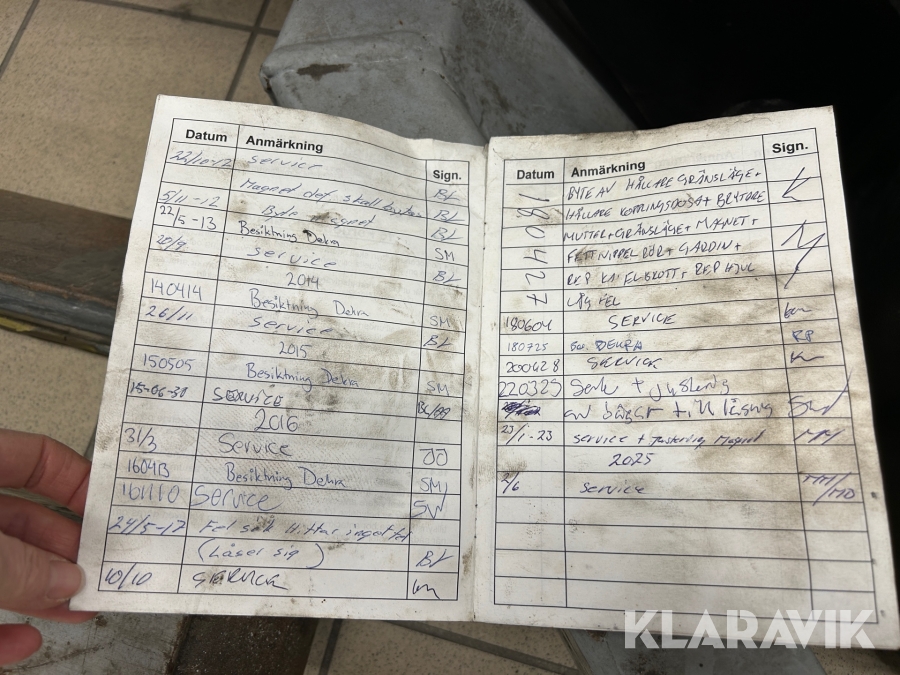 Datum Anmärkning Sign.
22/10-12 Service BL
Magnet def skall bytas BL
5/11-12 Byte magnet BL
22/5-13 Besiktning Dekra SM
20/9 Service BL
2014
140414 Besiktning Dekra SM
26/11 Service BL
2015
150505 Besiktning Dekra SM
15-06-30 SERVICE BL/
2016
31/3 Service JJ
160413 Besiktning Dekra SM
161110 SERVICE SW
24/5-17 Fel sök Hittar inget fel
(Låser sig) BL
10/10 SERVICE km
Datum Anmärkning Sign.
180427
BYTE AV HÅLLARE GRÄNSLÄGE +
HÅLLARE KOPPLINGSDOSA + BRYTARE
MUTTER + GRÄNSLÄGE + MAGNET +
FETTNIPPEL RÖR + GARDIN +
REP KABELBROTT + REP HJUL
LÅG FEL
180604 SERVICE km
180725 DEKRA RP
200428 SERVICE km
220325 Serv + justering
av bågar till låsning SW
23/1-23 service + justering Magnet MH
2025
2/6 service MH/MD
KLARAVIK